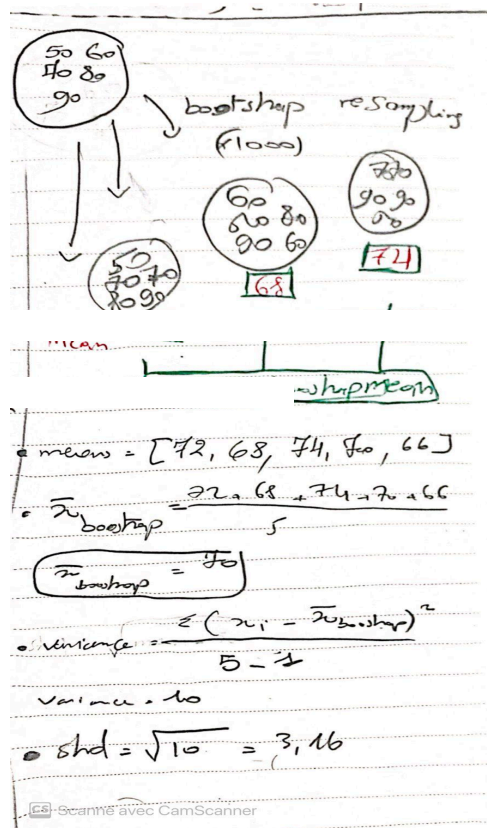 50 60
70 80
90
bootstrap resampling
(×1000)
50
70 70
80 90
60
60 80
90 60
68
70
90 90
74
mean
means = [72, 68, 74, 70, 66]
x̄ bootstrap = 72 + 68 + 74 + 70 + 66
5
x̄ bootstrap = 70
variance = Σ (xᵢ - x̄ bootstrap)²
5 - 1
variance = 10
std = √10 = 3,16
CS Scanné avec CamScanner